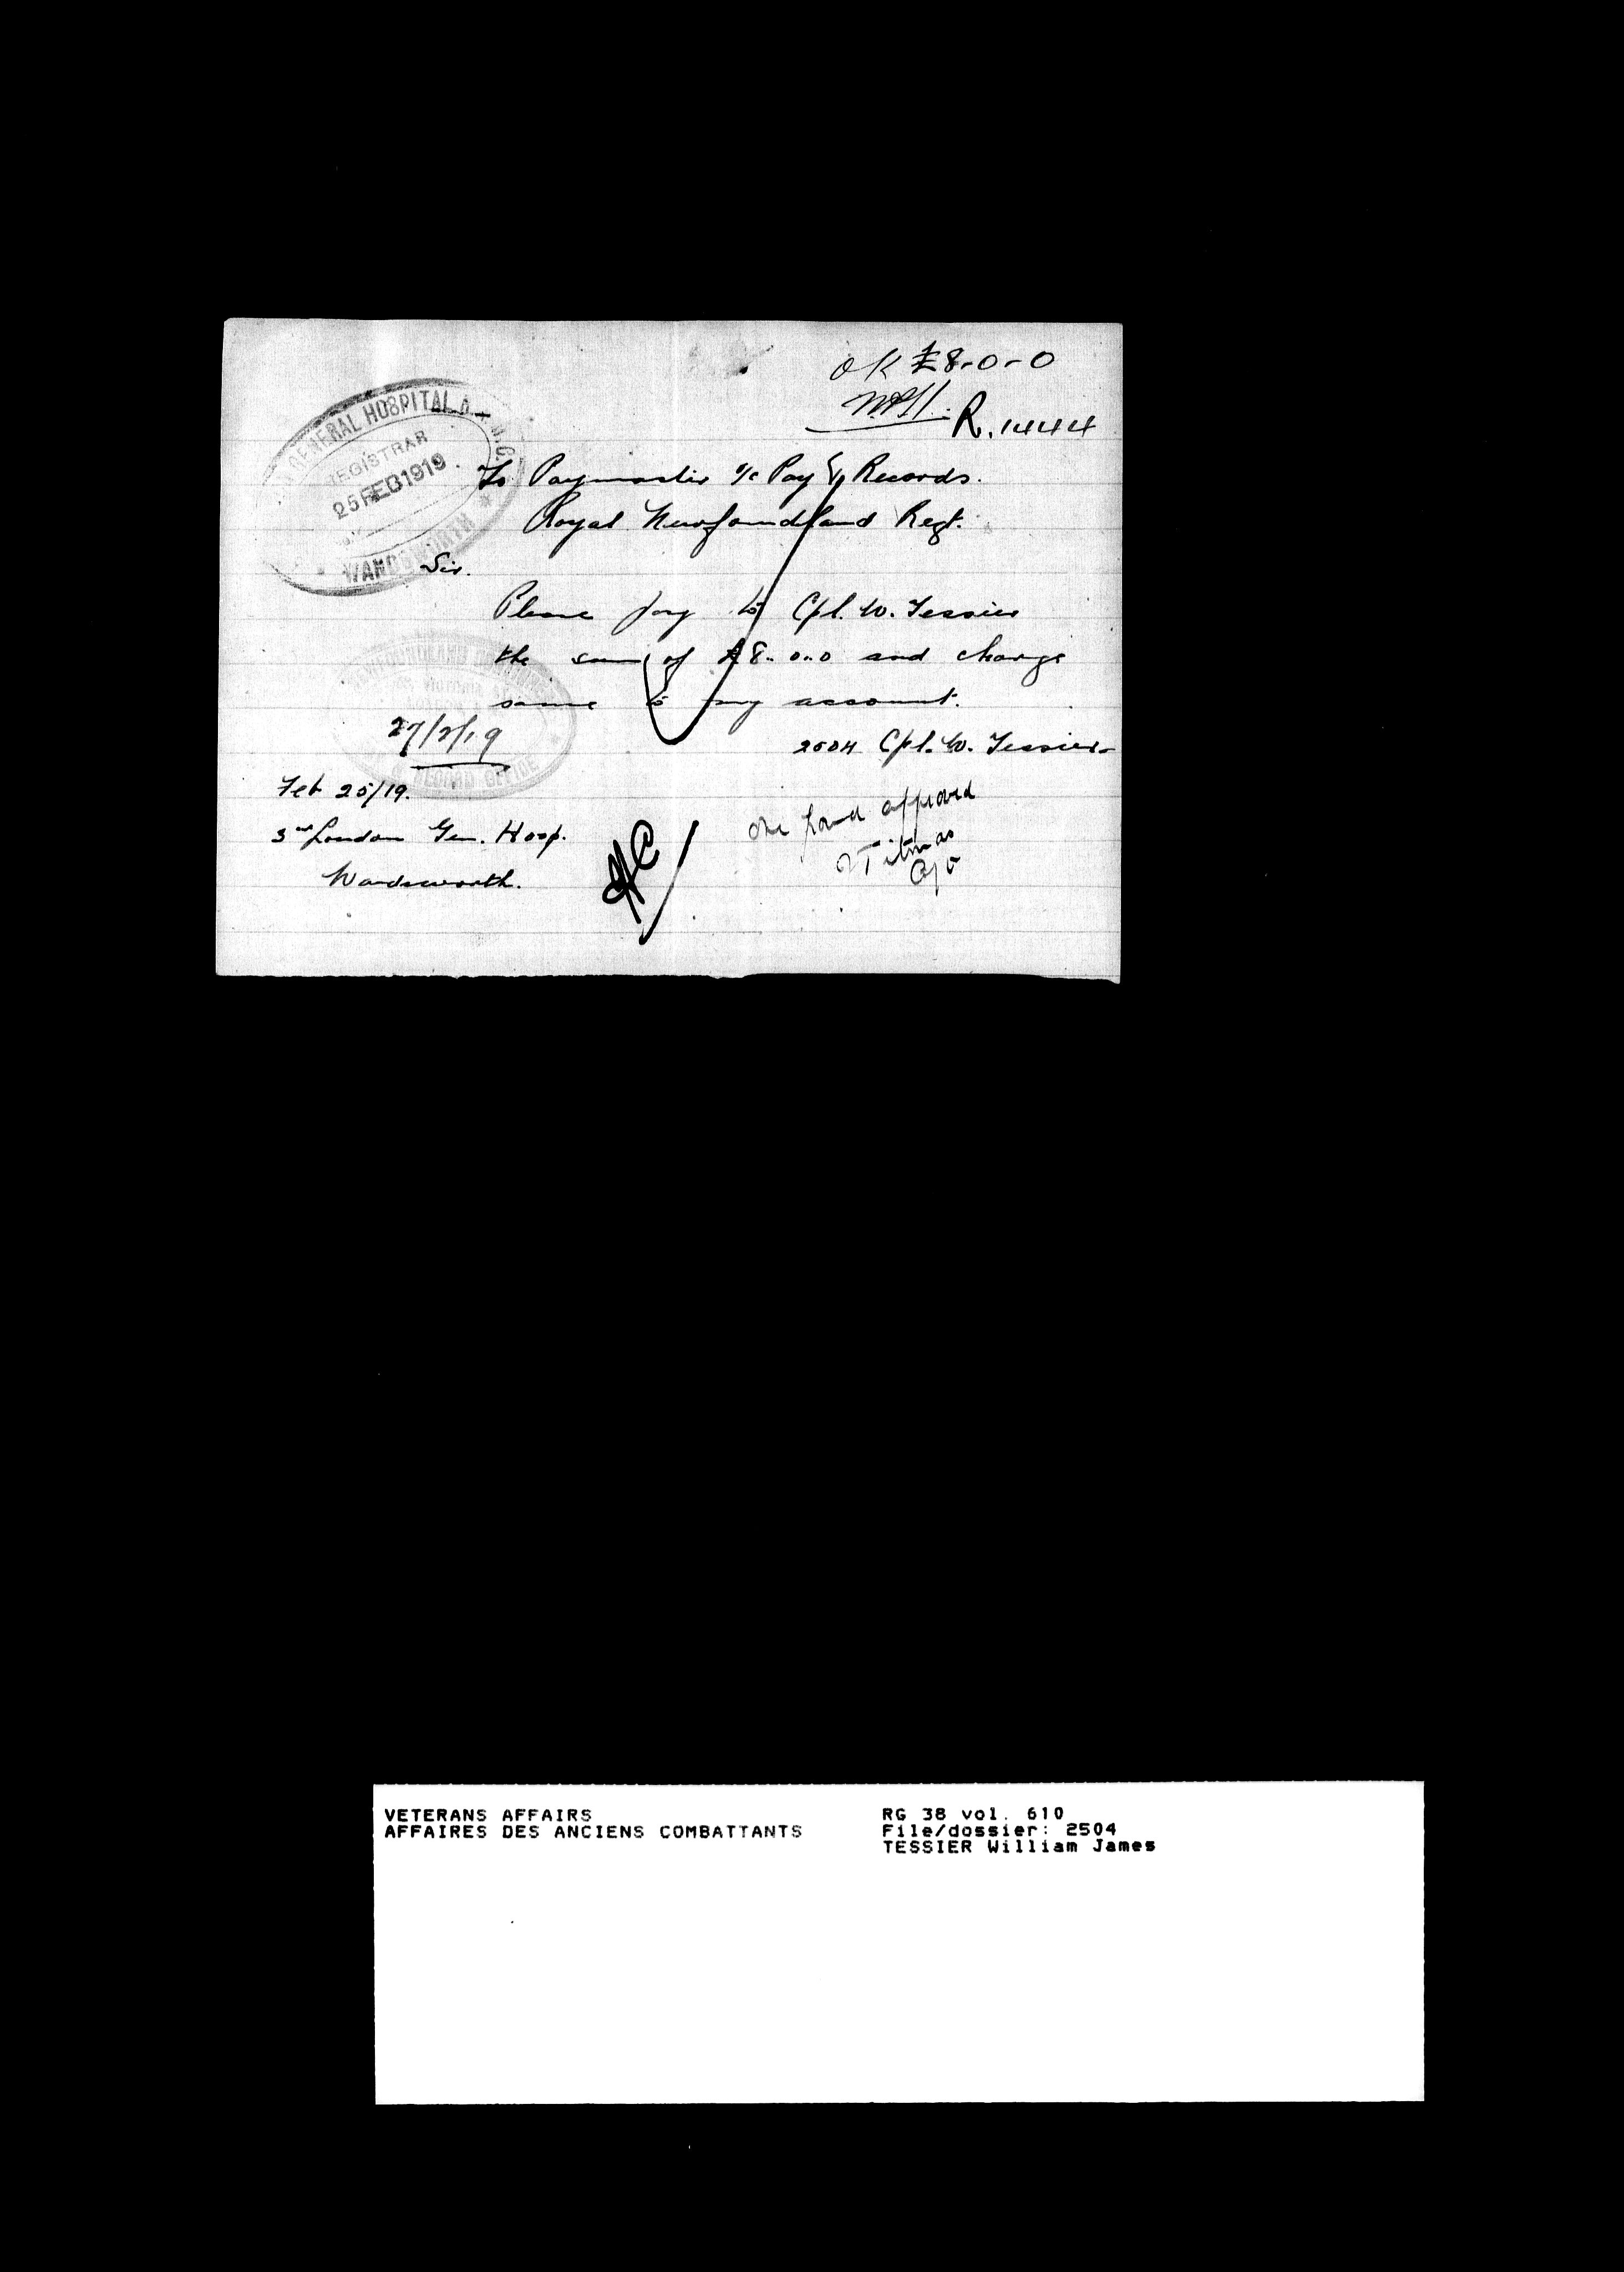 OK £8-0-0
R. 1444
GENERAL HOSPITAL
REGISTRAR
25 FEB 1919
WANDSWORTH
To Paymaster i/c Pay & Records.
Royal Newfoundland Regt.
Sir.
Please pay to Cpl. W. Tessier
the sum of £8..0..0 and charge
same to my account.
27/2/19
2504 Cpl. W. Tessier
RECORD OFFICE
Feb 25/19.
3rd London Gen. Hosp.
Wandsworth.
One pound approved
VETERANS AFFAIRS
AFFAIRES DES ANCIENS COMBATTANTS
RG 38 vol. 610
File/dossier: 2504
TESSIER William James